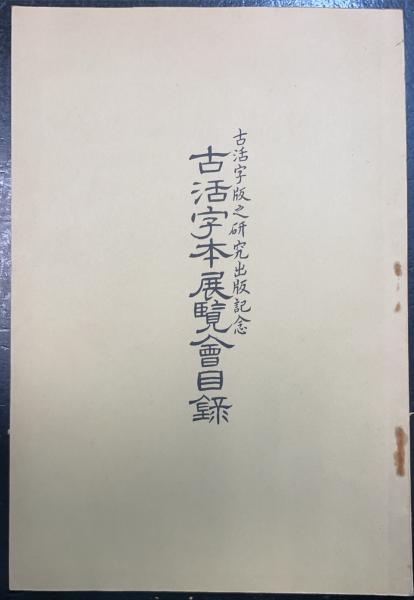 古活字版之研究出版記念
古活字本展覧會目錄